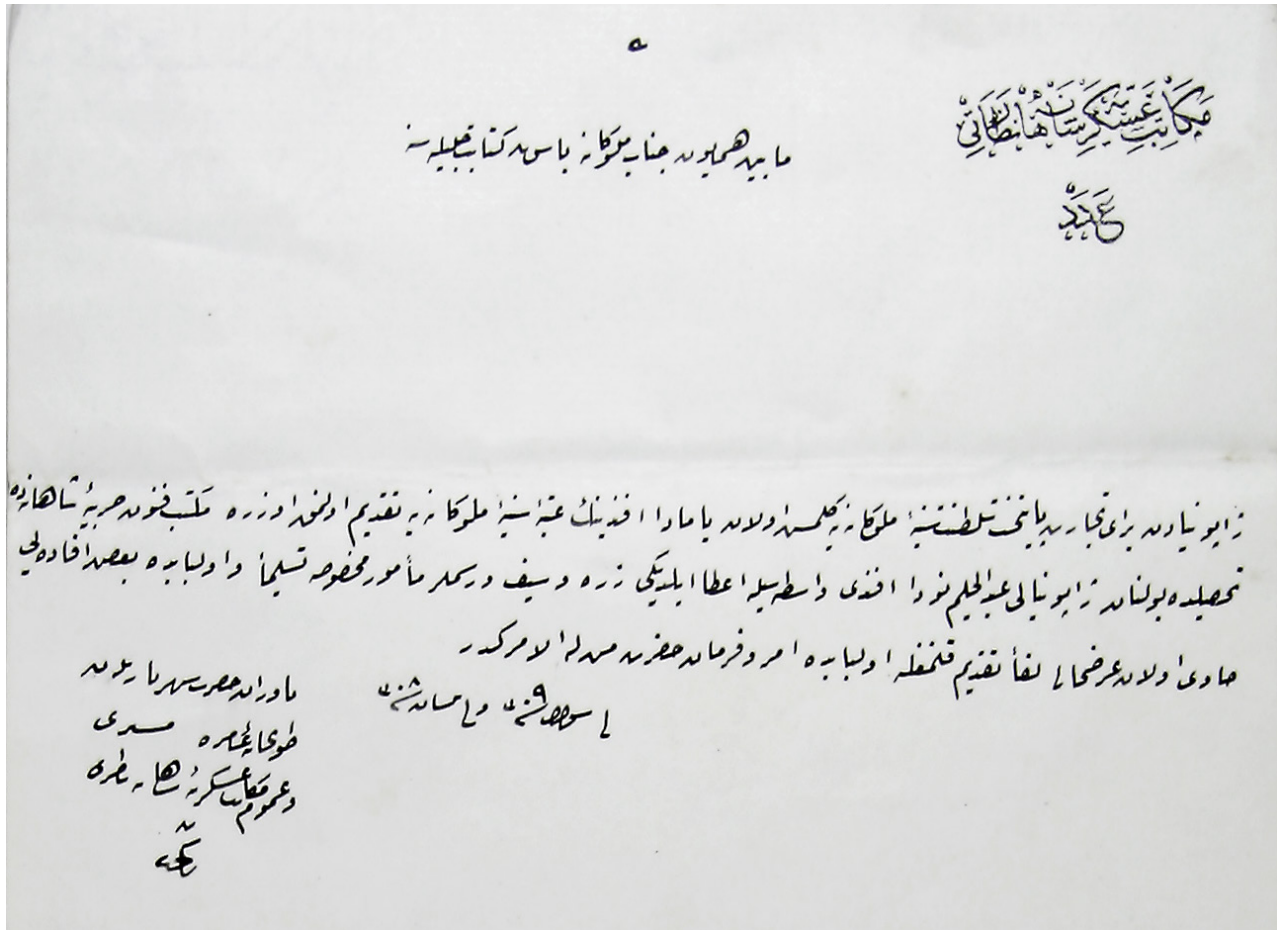 مكاتب عسكريه شاهانه نظارتى
عدد
مابين همايون جناب ملوكانه باش كتابت جليله سنه
ژاپونيادن براى تجارت پايتخت سلطنت سنيه ملوكانه يه كلمش اولان يامادا افندينك عتبه اسنيه ملوكانه يه تقديم اولنمق اوزره مكتب فنون حربيه شاهانه ده
تحصيلده بولنان ژاپونيالى عبدالحليم نودا افندى واسطه سيله اعطا ايلديكى زره وسيف ورسملر مأمور مخصوصه تسليماً واولبابده بعض افاده يى
حاوى اولان عرضحالى لفاً تقديم قلنمغله اولبابده امر وفرمان حضرت من له الامركدر
فى شوال سنه ٣٠٩ وفى نيسان سنه ٣٠٨
ياوران حضرت شهرياريدن
طوپخانه عامره مشيرى
وعموم مكاتب عسكريه شاهانه ناظرى